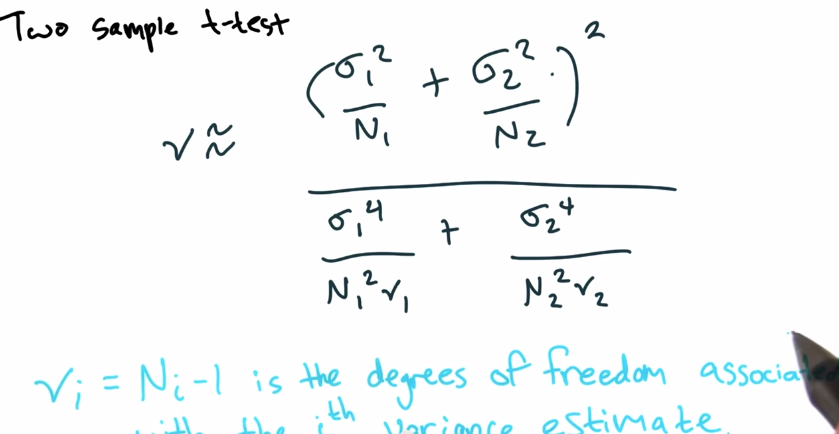 Two sample t-test
ν ≈ (σ₁²/N₁ + σ₂²/N₂)² / (σ₁⁴/(N₁²ν₁) + σ₂⁴/(N₂²ν₂))
νᵢ = Nᵢ-1 is the degrees of freedom
with the iᵗʰ variance estimate.